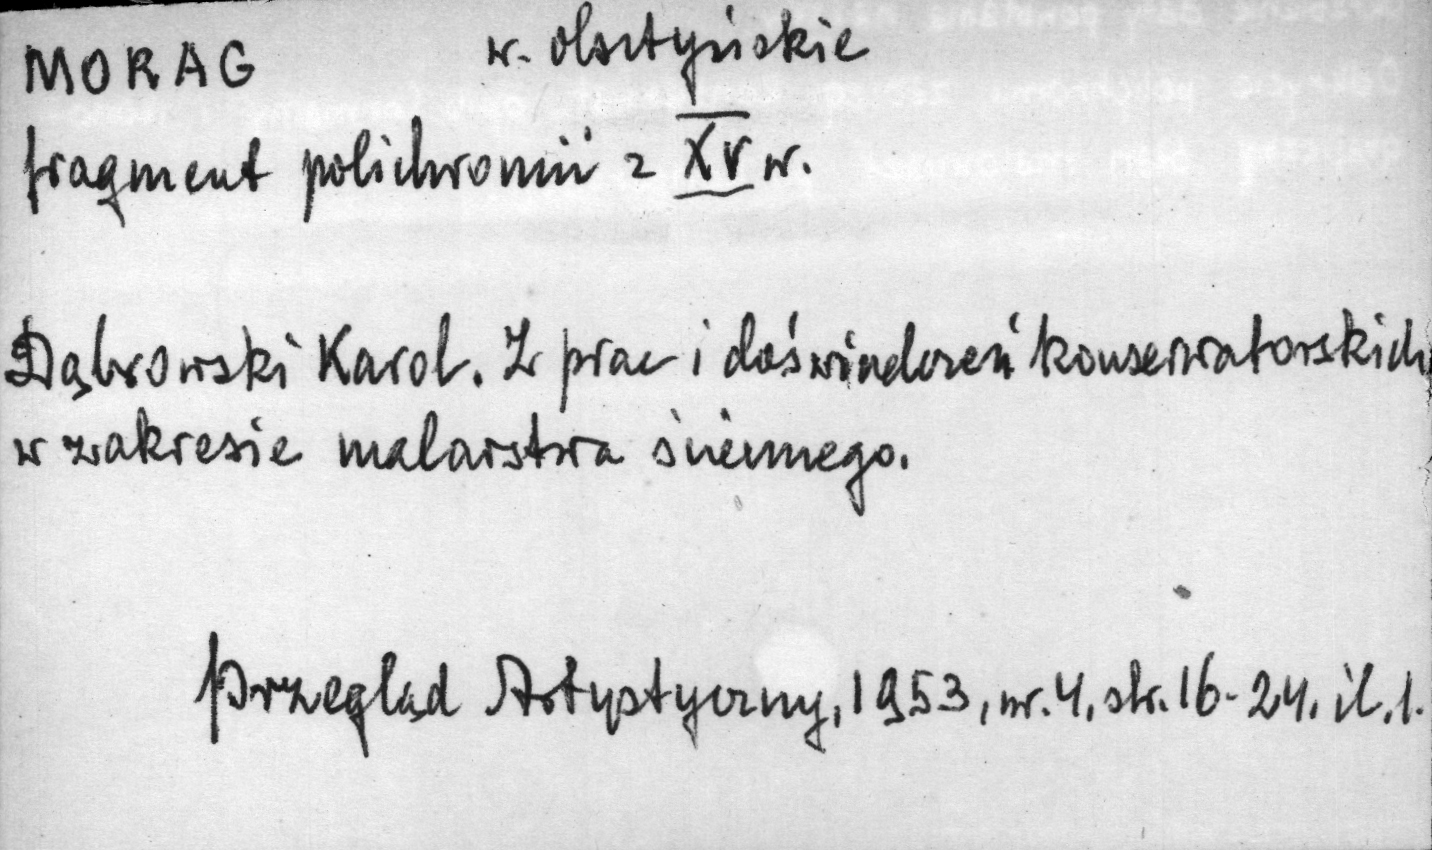 MORAG w. olsztyńskie
fragment polichromii z XV w.
Dąbrowski Karol. Z prac i doświadczeń konserwatorskich
w zakresie malarstwa ściennego.
Przegląd Artystyczny, 1953, nr. 4, str. 16-24. il. 1.